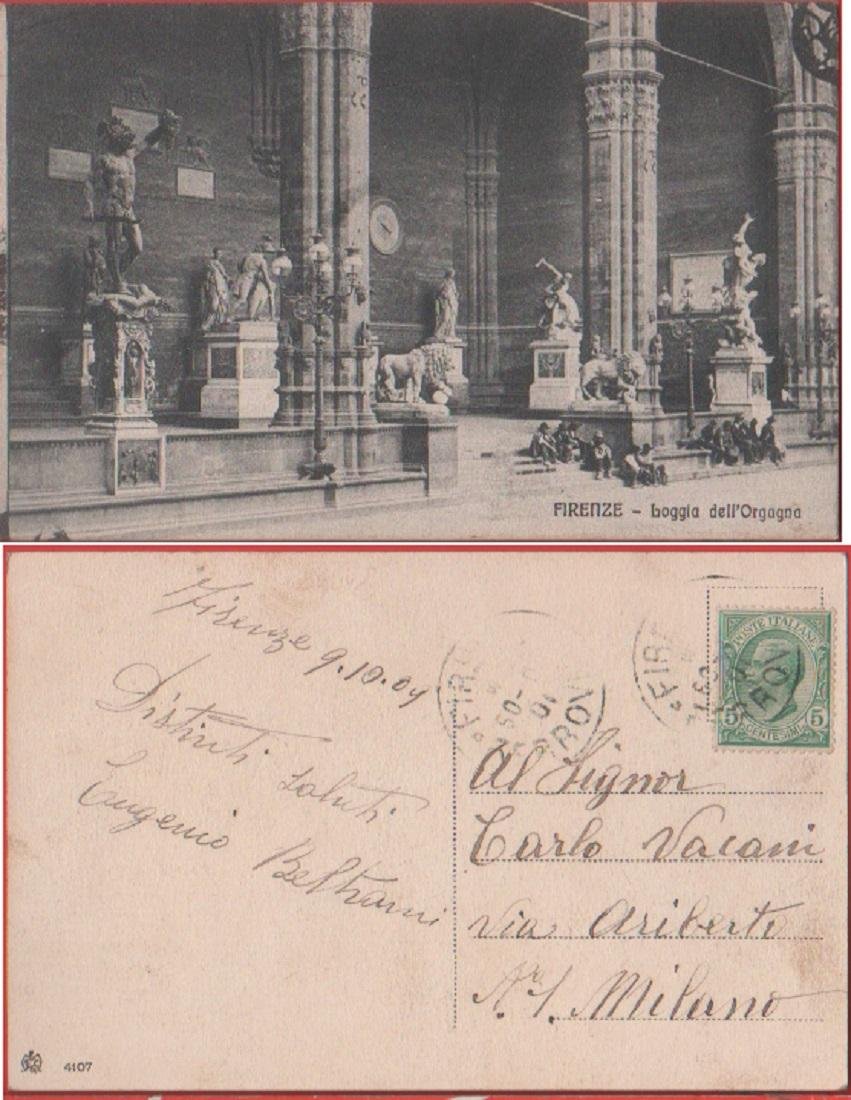 FIRENZE - Loggia dell'Orgagna
Firenze 9.10.09
Distinti saluti
Eugenio Beltrami
FIRE
FIRE
POSTE ITALIANE
5 5
CENTESIMI
Al Signor
Carlo Vacani
Via Ariberto
Milano
4107